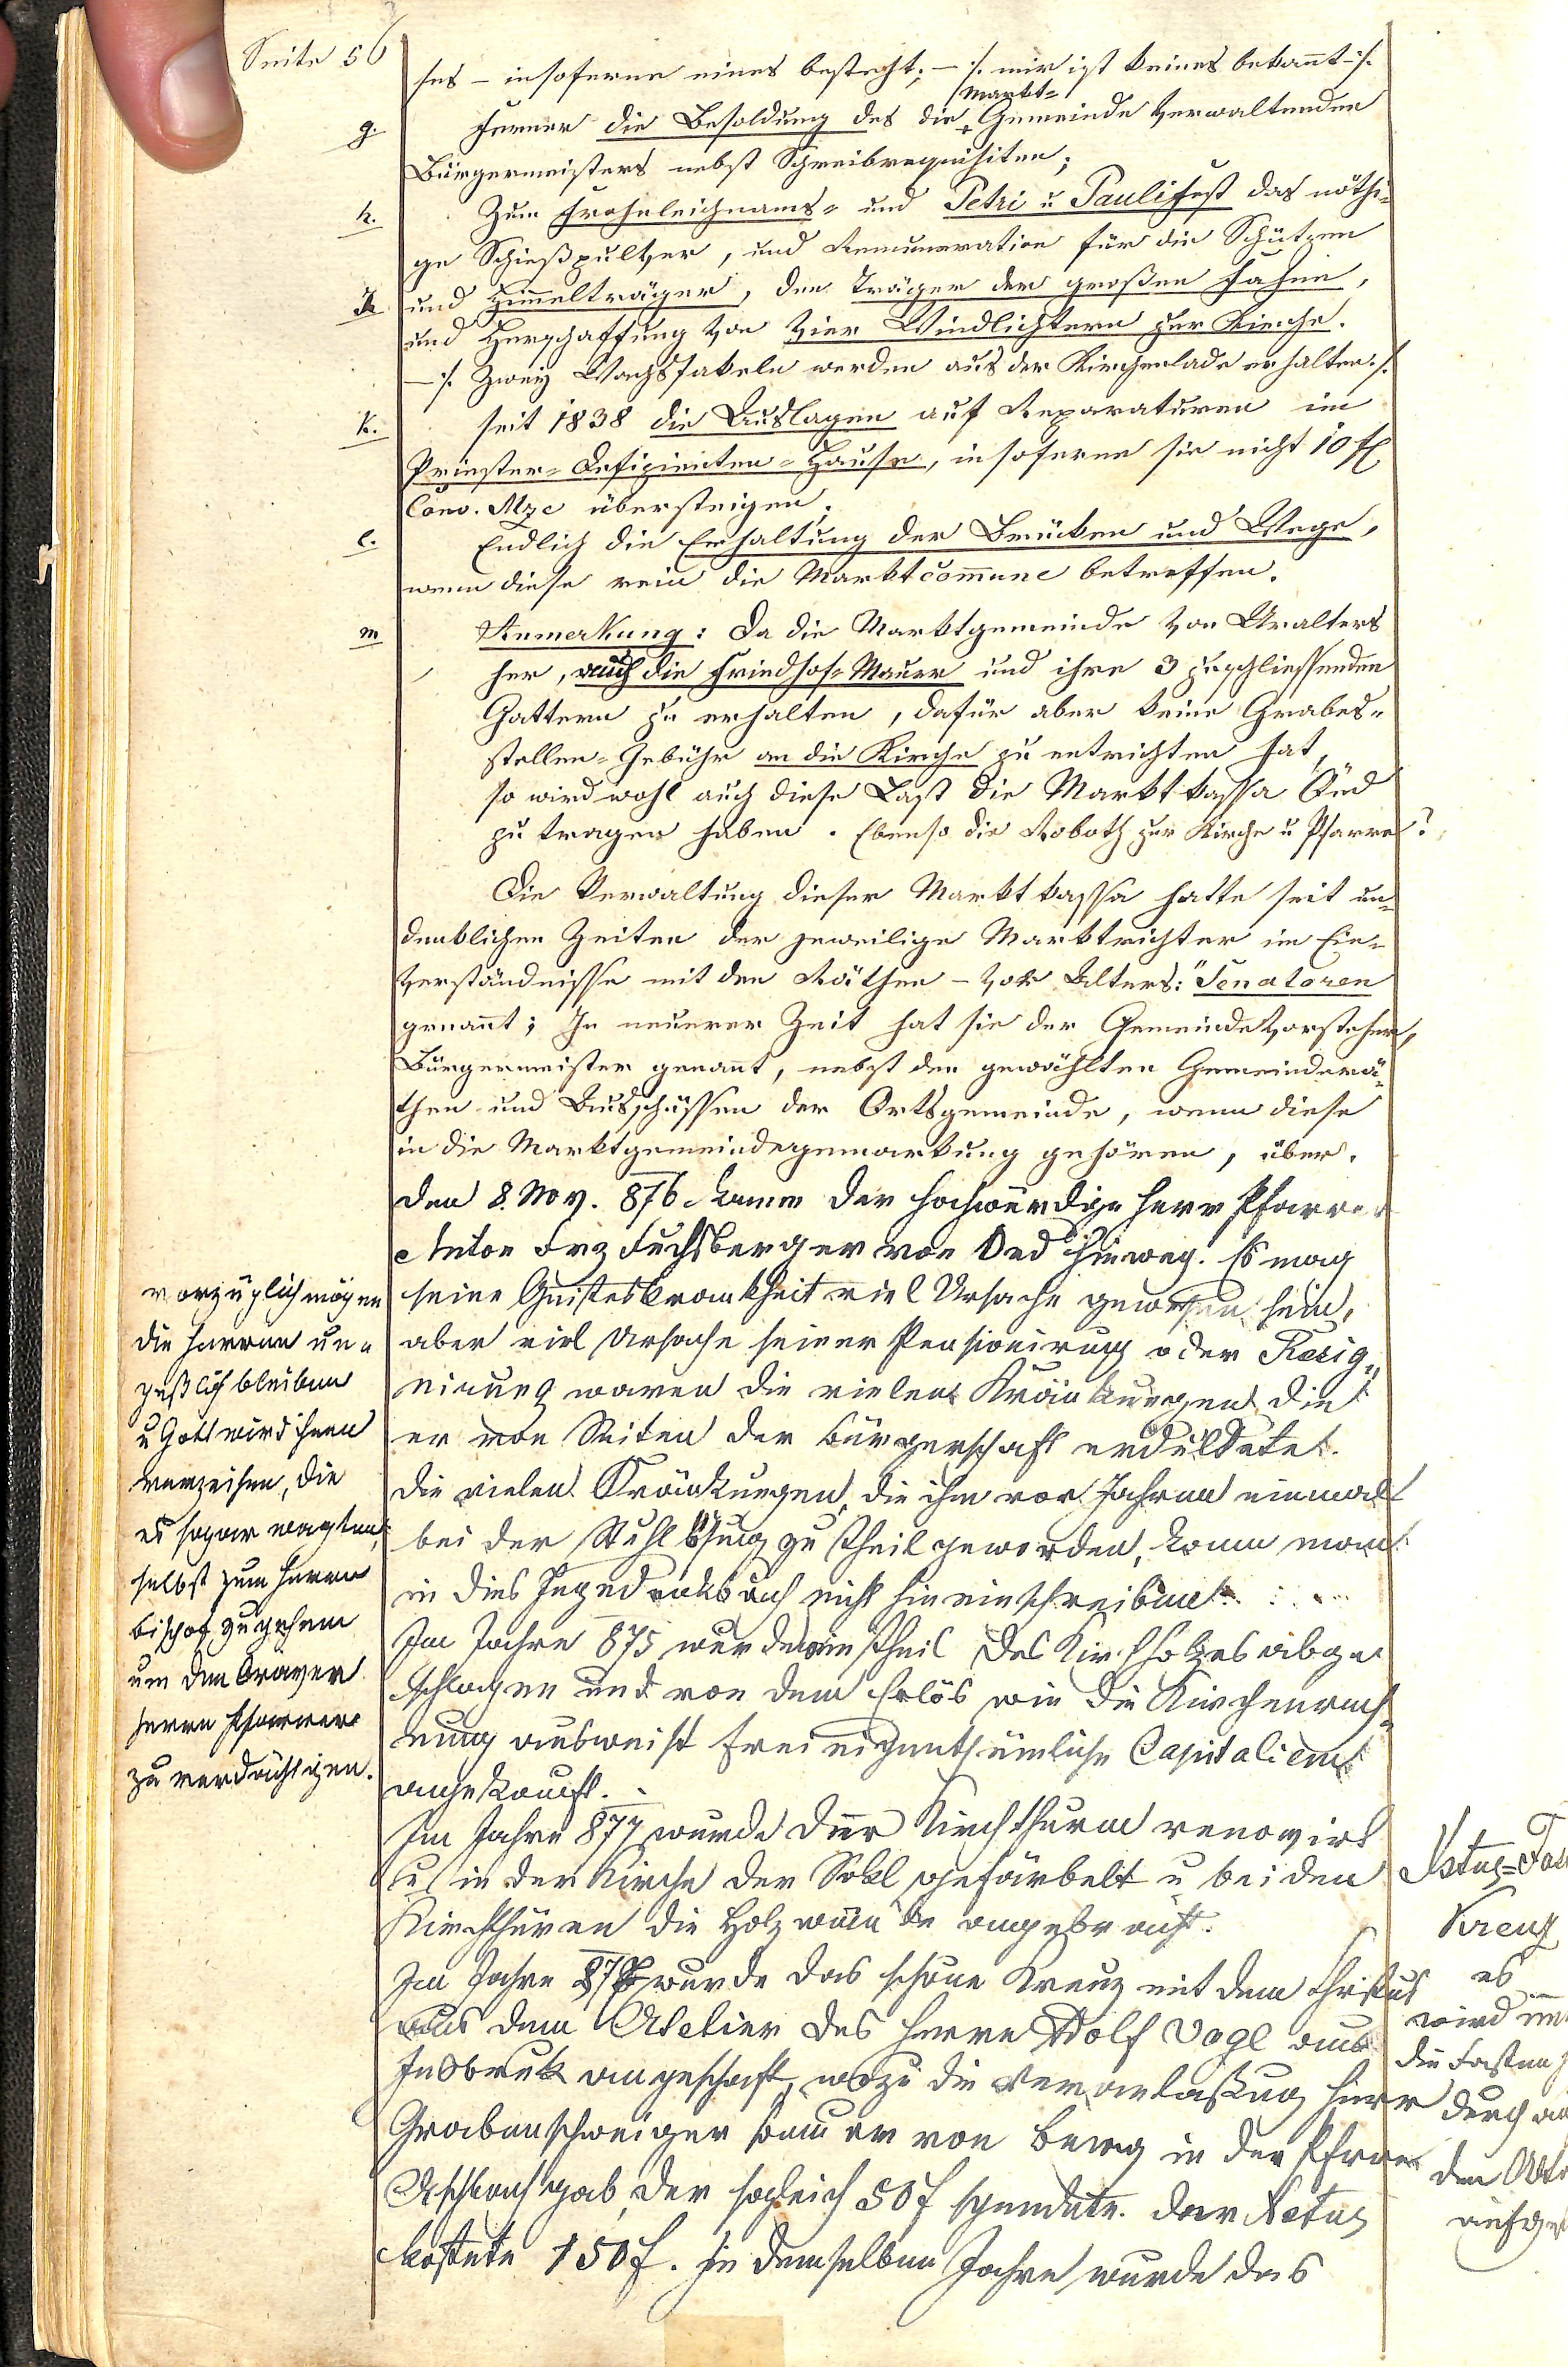 Seite 56
ses – insoferne eines besteht; – :/. mir ist keines bekannt –:/.
Markt=
g. Ferner die Besoldung des die Gemeinde verwaltenden
Bürgermeisters nebst Schreibrequisiten;
h. Zum Frohnleichnams= und Petri u Paulifest das nöthi=
ge Schießpulver, und Remuneration für die Schützen
und Himelträger, den Träger der großen Fahne,
und Herschaffung von vier Windlichtern zur Kirche.
– :/. Zwey Wachsfakeln werden aus der Kirchenlade erhalten :/.
k. seit 1838 die Auslagen auf Reparaturen im
Priester=Defizienten=Hause, insoferne sie nicht 10 fl
Conv. Mze übersteigen;
l. Endlich die Erhaltung der Brüken und Wege,
wenn diese rein die Marktcom̄une betreffen.
m Anmerkung: Da die Marktgemeinde von Uralters
her, auch die Friedhof=Mauer und ihre 3 zuschliessenden
Gattern zu erhalten, dafür aber keine Grabes=
stellen=Gebühr an die Kirche zu entrichten hat,
so wird wohl auch diese Last die Marktkassa Öed
zu tragen haben. Ebenso die Roboth zur Kirche u Pfarre?
Die Verwaltung dieser Marktkassa hatte seit un=
denklichen Zeiten der jeweilige Marktrichter im Ein=
verständnisse mit den Räthen – vor Alters: "Senatoren
genannt; In neuerer Zeit hat sie der Gemeindevorsteher,
Bürgermeister genannt, nebst den gewählten Gemeinderä=
then und Ausschüssen der Ortsgemeinde, wenn diese
in die Marktgemeindegemarkung gehören, über.
Den 8. Nov. 876 kamm der hochwürdige Herr Pfarrer
Anton Frz Fuchsberger von Oed hinweg. Es mag
seine Geisteskrankheit viel Ursache gewesen sein,
aber viel Ursache seiner Pensionirung oder Resig=
nirung waren die vielen Kränkungen die
er von Seiten der Bürgerschaft erduldete.
Die vielen Kränkungen, die ihm vor Jahren einmal
bei der Stuhllösung zu theil geworden, kann man
in dies Gedenkbuch nicht hineinschreiben.
vorzüglich mögen
die Herren un=
geßlich bleiben
u Gott wird ihnen
verzeihen, die
es sogar wagten,
selbst zum Herrn
bischof zu gehen
um den braven
Herrn Pfarrer
zu verdächtigen.
Im Jahre 875 wurde ein theil des Kirchholzes abge
schlagen und von dem Erlös wie die Kirchenrech=
nung ausweist freieigenthümliche Capitalien
angekauft.
Im Jahre 877 wurde der Kirchthurm renovirt
u in der Kirche der Sokl gefärbelt u bei den
Kirchthüren die Holzwände angebracht.
Im Jahre 878 wurde das schöne Kreuz mit dem Christus
aus dem Atelier des Herrn Adolf Vogl aus
Insbruk angeschaft, wozu die Veranlaßung Herr
Grabenschweiger bauer von Berg in der Pfarre
Aschbach gab, der sogleich 50 f spendete. Der Xstus
kostete 150 f. In demselben Jahre wurde das
Xstus=
Kreuz
es
wird
die Fasten
durch
den